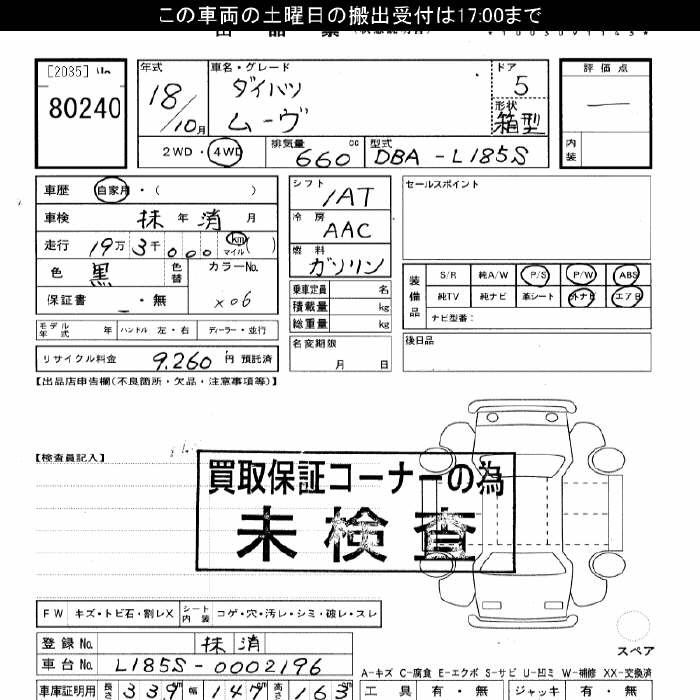 この車両の土曜日の搬出受付は17:00まで
[2035]
80240
年式
18/10月
車名・グレード
ダイハツ
ムーヴ
ドア
5
形状
箱型
評価点
—
内装
2WD・4WD
排気量 660 cc
型式 DBA-L185S
車歴 自家用・( )
車検 抹 年 消 月
走行 19万3千000 km マイル( )
色 黒 色替
カラーNo.
X06
保証書 ・無
モデル年式 年 ハンドル 左・右 ディーラー・並行
リサイクル料金 9.260円 預託済
シフト
IAT
冷房
AAC
燃料
ガソリン
乗車定員 名
積載量 kg
総重量 kg
名変期限
月 日
セールスポイント
装備品
S/R 純A/W P/S P/W ABS
純TV 純ナビ 革シート 外ナビ エアB
ナビ型番:
後日品
【出品店申告欄(不良箇所・欠品・注意事項等)】
【検査員記入】
買取保証コーナーの為
未検査
FW キズ・トビ石・割レX シート内装 コゲ・穴・汚レ・シミ・破レ・スレ
登録No. 抹消
車台No. L185S-0002196
スペア
A-キズ C-腐食 E-エクボ S-サビ U-凹ミ W-補修 XX-交換済
車庫証明用 長さ 339 cm 幅 147 cm 高さ 163 cm
工具 有・無 ジャッキ 有・無